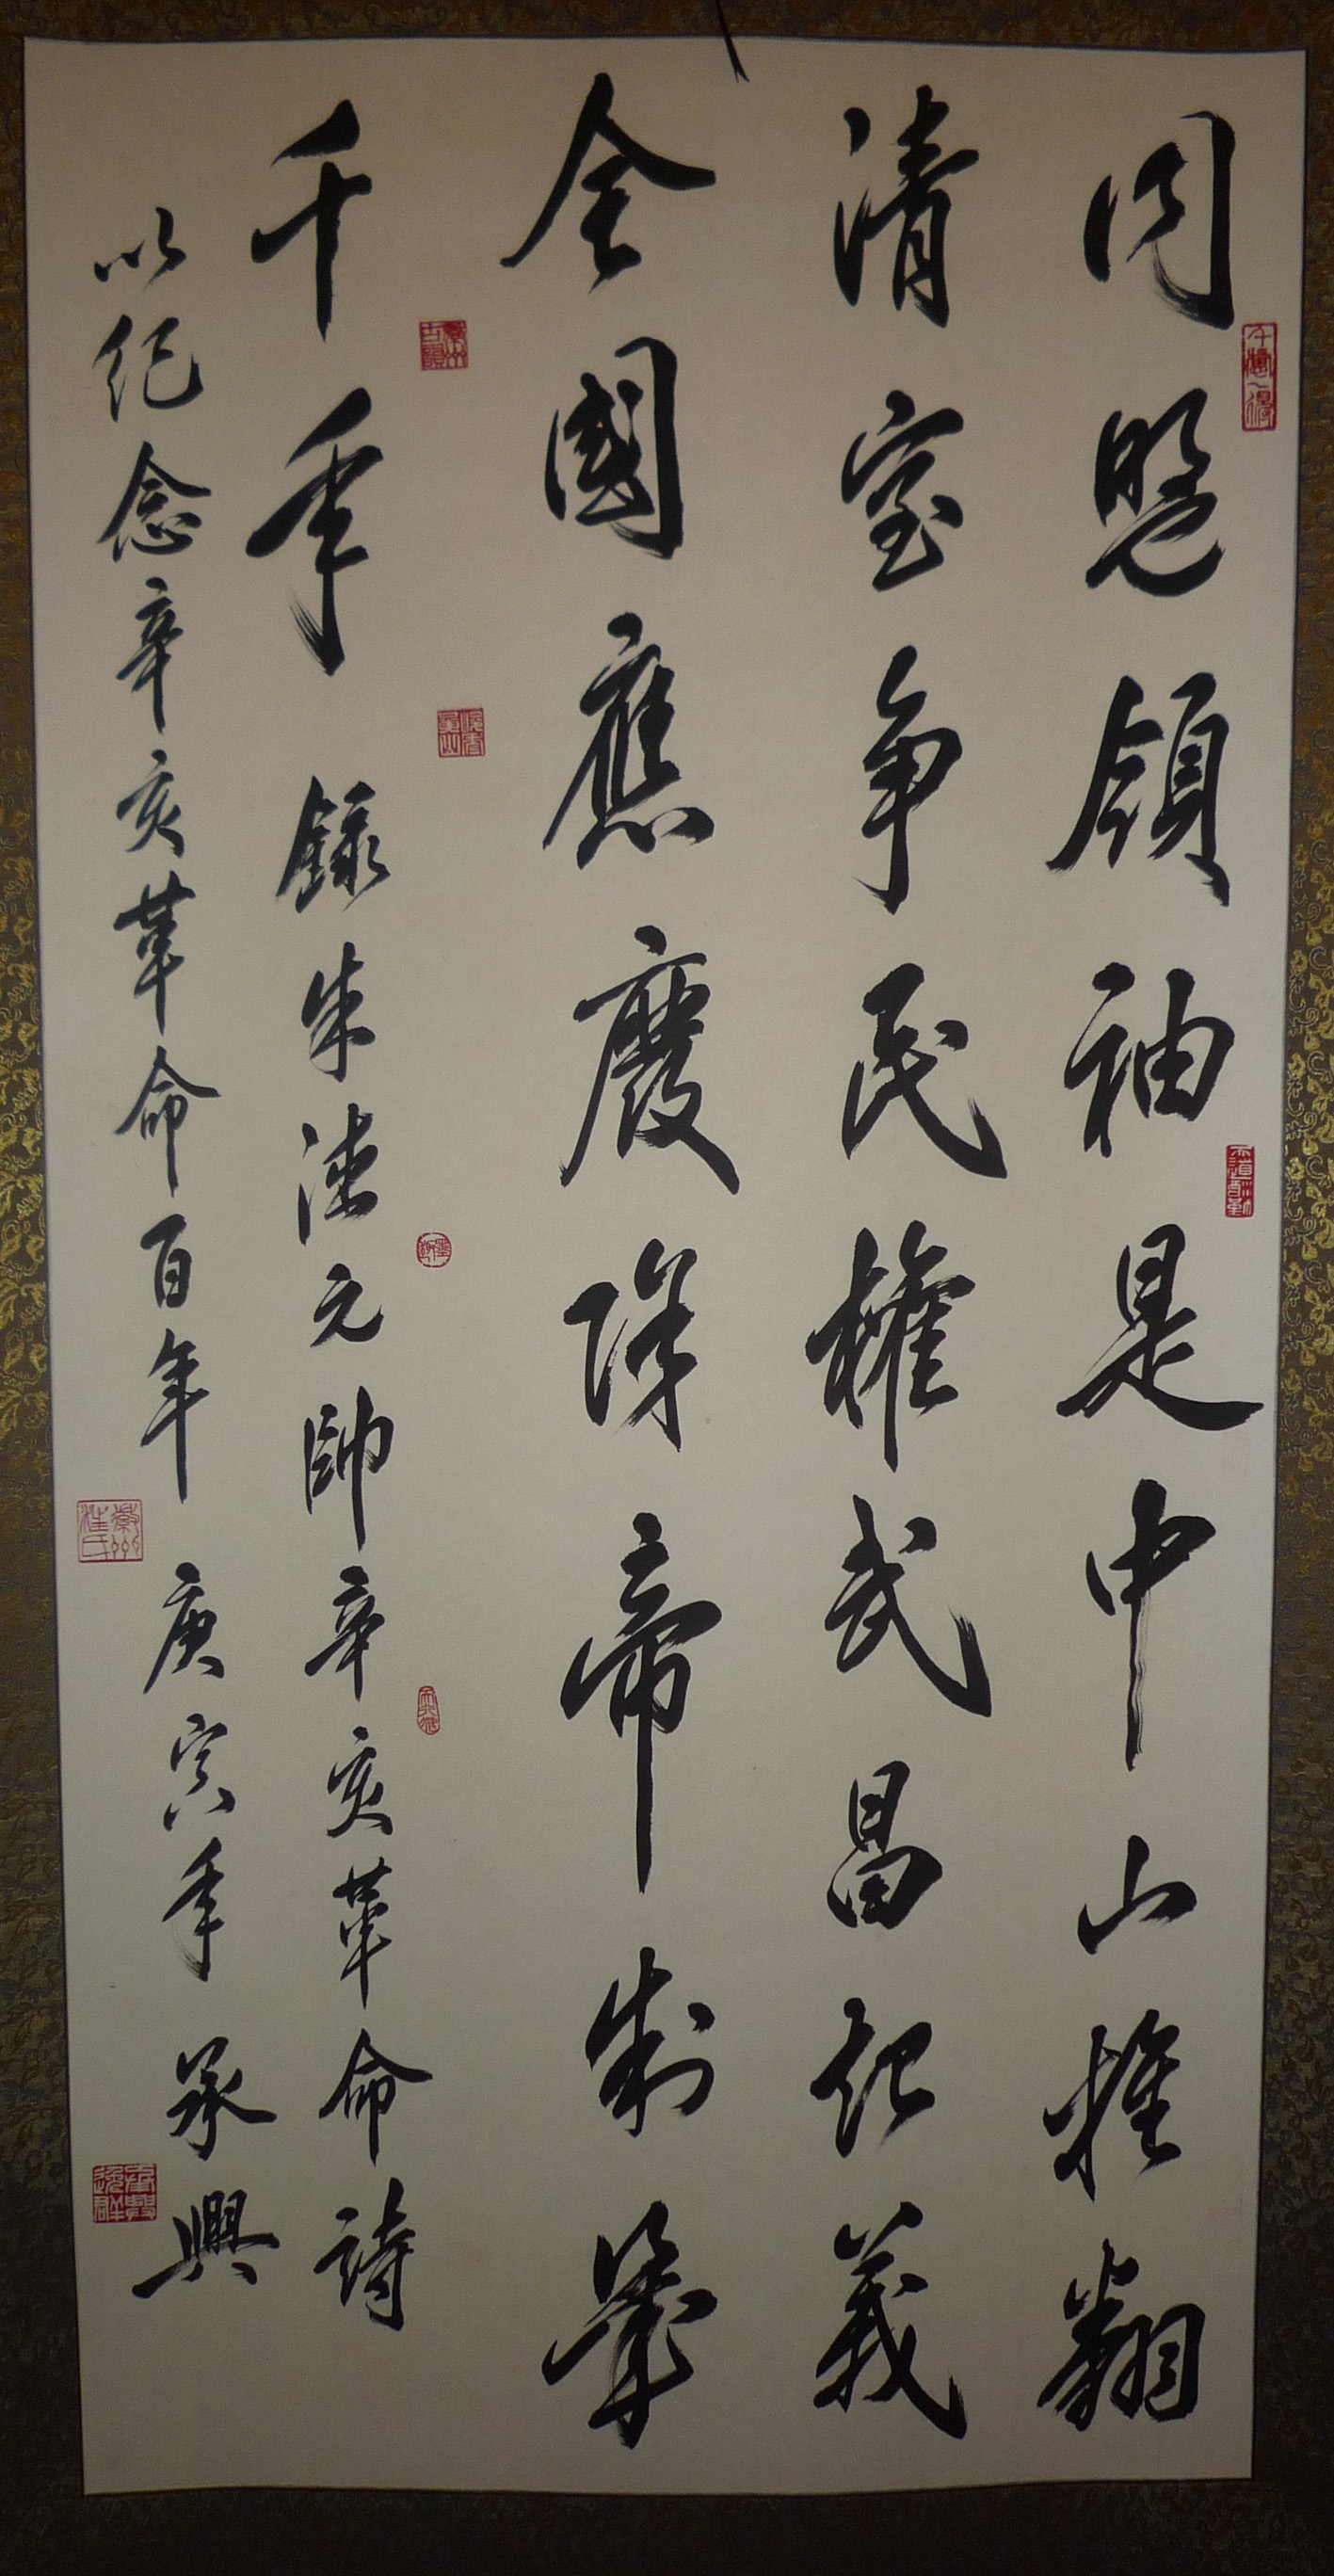 同盟領袖是中山推翻
清室争民權武昌起義
全國應廢除帝制舉
千年 錄朱德元帥辛亥革命詩
以紀念辛亥革命百年 庚寅年 承興